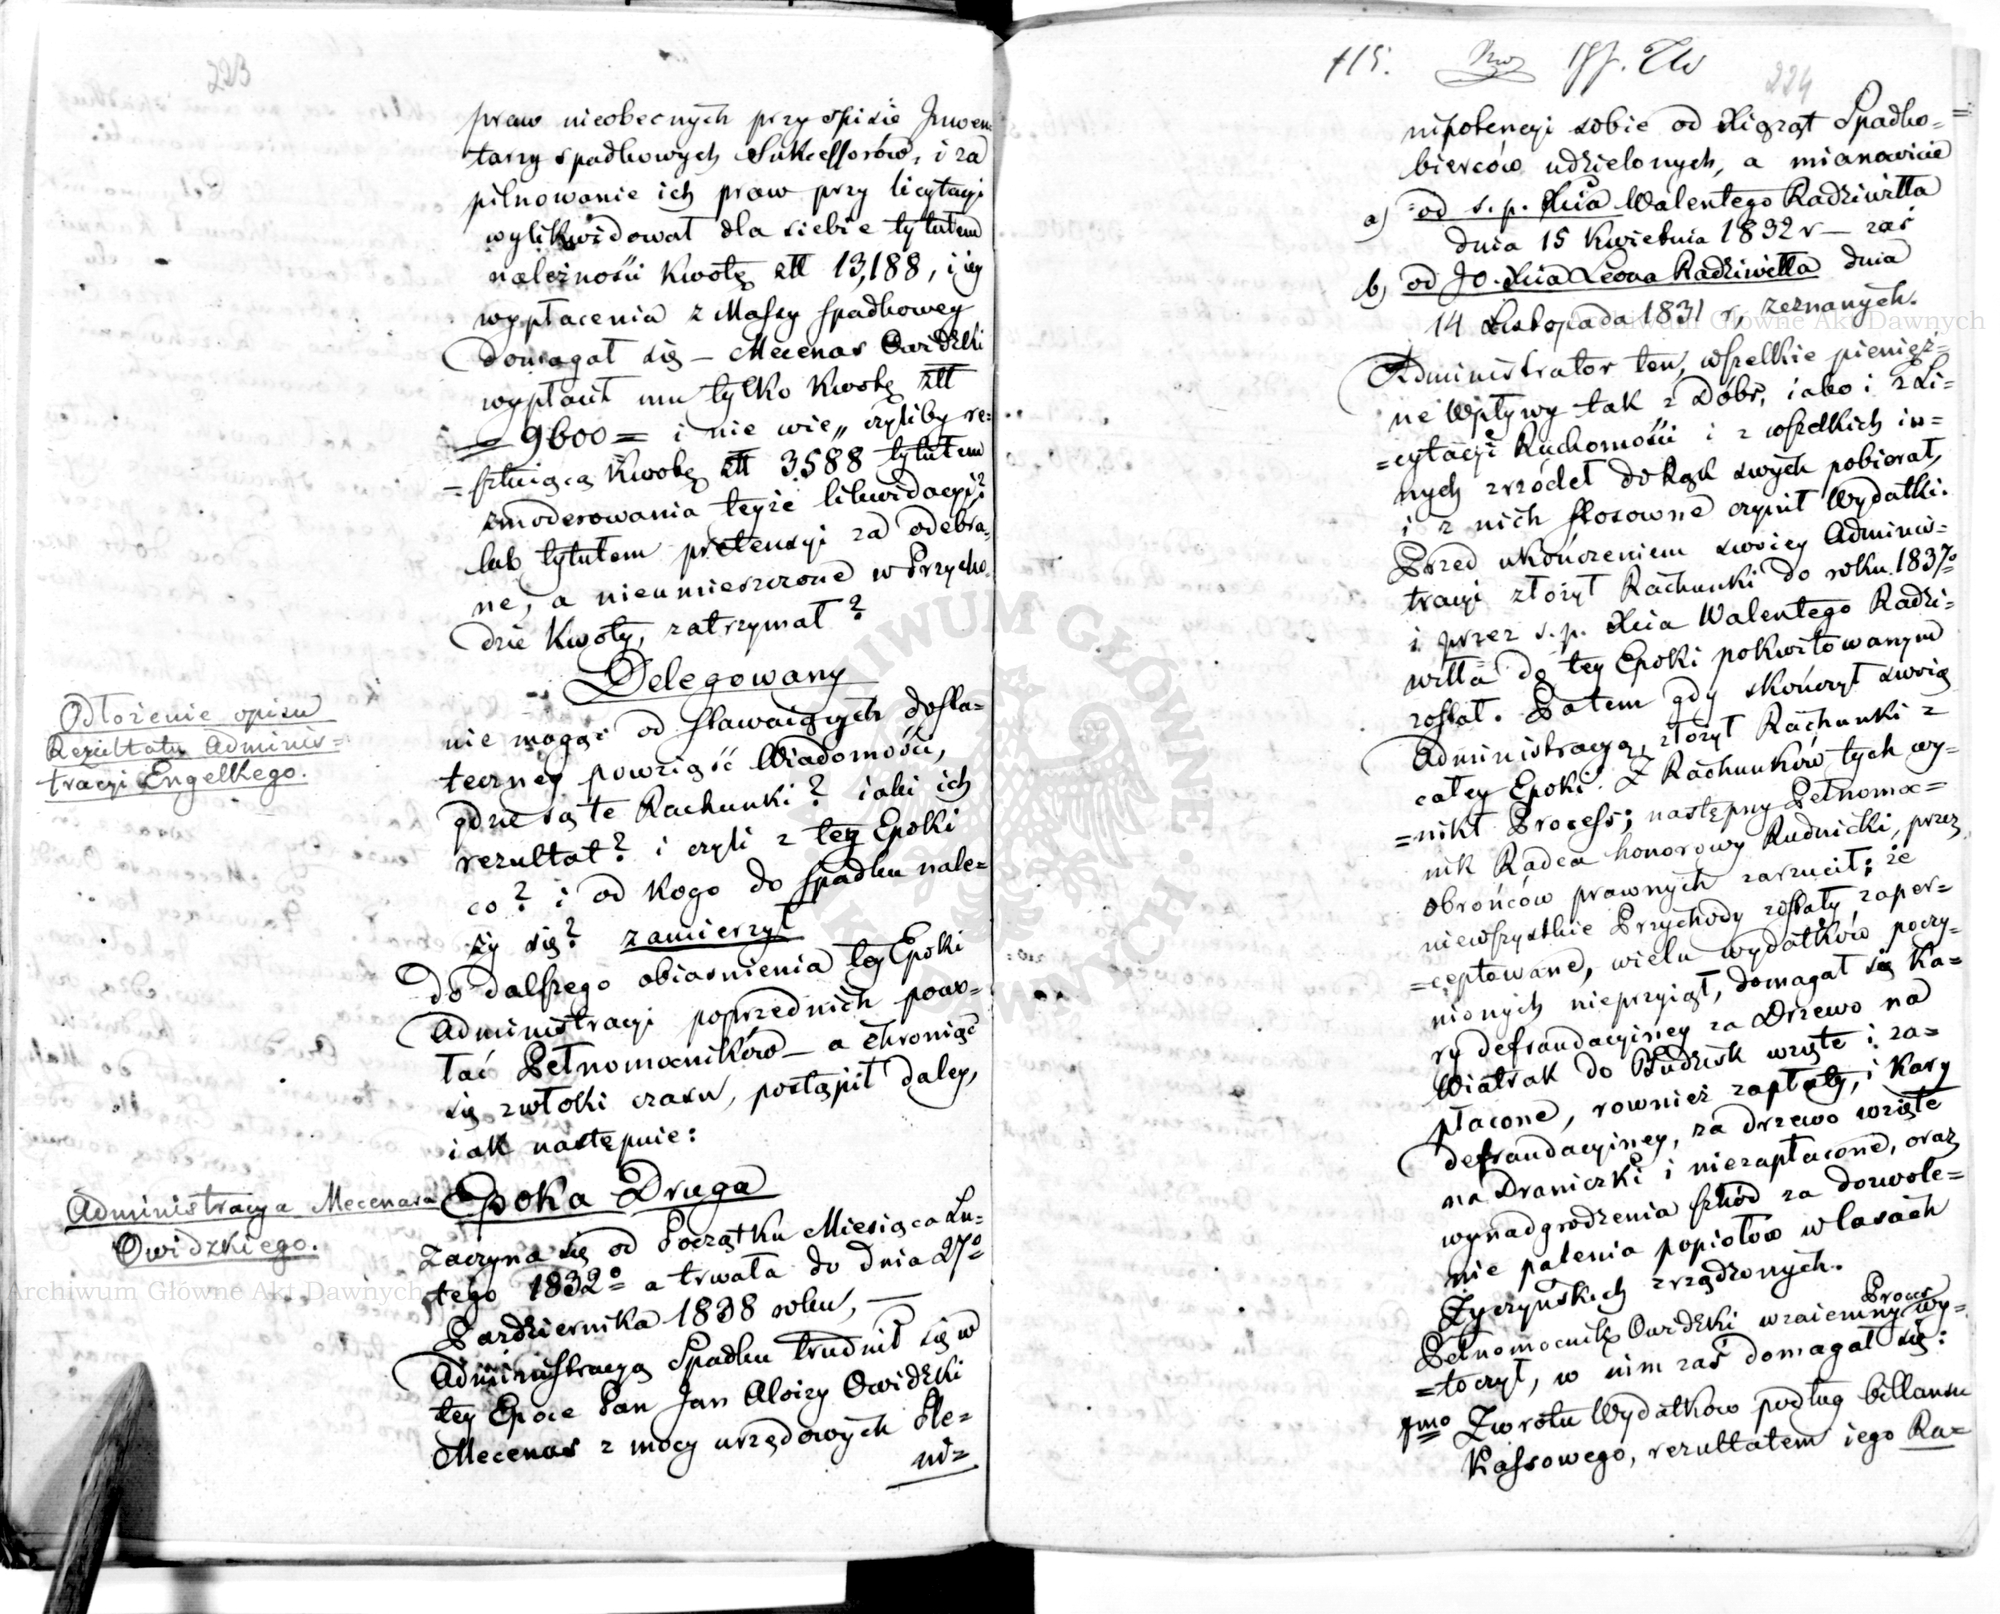 223
praw nieobecnych przy spisie Inwen
tarzy spadkowych Sukcessorów, i za
pilnowanie ich praw przy licytacyi
wylikwidował dla siebie tytułem
należności Kwotę złł 13,188, i iey
wypłacenia z Massy spadkowey
domagał się — Mecenas Owidzki
wypłacił mu tylko Kwotę złł
9600 = i nie wie„ czyliby re=
=sztuiącą Kwotę złł 3588 tytułem
zmoderowania teyże likwidacyi?
lub tytułem pretensyi za odebra=
ne, a nieumieszczone w Przycho=
dzie Kwoty, zatrzymał?
Delegowany
nie mogąc od stawaiących dosta=
teczney powziąść Wiadomości,
gdzie są te Rachunki? iaki ich
rezultat? i czyli z tey Epoki
co? i od Kogo do spadku nale=
ży się? zamierzył
do dalszego obiasnienia tey Epoki
Administracyi poprzednich powo=
łać Pełnomocników — a chroniąc
się zwłoki czasu, postąpił daley,
iak następuie:
Odłożenie opisu
Rezultatu Adminis=
tracyi Engelkego.
Epoka Druga
Administracya Mecenasa
Owidzkiego.
Zaczyna się od Początku Miesiąca Lu=
tego 1832º = a trwała do dnia 27º
Pazdziernika 1838 roku, —
Administracyą Spadku trudnił się w
tey Epoce Pan Jan Aloizy Owidzki
Mecenas z mocy urzędowych Ple=
ni=
115.
224
nipotencyi sobie od Xiążąt Spadko=
bierców udzielonych, a mianowicie
a) od ś. p. Xcia Walentego Radziwiłła
dnia 15 Kwietnia 1832 r — zaś
b) od JO. Xcia Leona Radziwiłła dnia
14 Listopada 1831 r. zeznanych.
Administrator ten, wszelkie pienięż=
ne Wpływy tak z Dóbr, iako i z Li=
=cytacyi Ruchomości i z wszelkich in=
nych zrzódeł do Rąk swych pobierał,
i z nich stosowne czynił Wydatki.
Przed ukończeniem swoiey Adminis=
tracyi złożył Rachunki do roku 1837º
i przez ś. p. Xcia Walentego Radzi=
wiłła do tey Epoki pokwitowanym
został. Potem gdy skończył swoią
Administracyą, złożył Rachunki z
całey Epoki. Z Rachunków tych wy=
=nikł Process; następny Pełnomoc=
nik Radca honorowy Rudnicki, przez
obrońców prawnych zarzucił; że
niewszystkie Przychody zostały zaper=
=ceptowane, wielu wydatków poczy=
nionych nieprzyiął, domagał się Ka=
ry defraudacyiney za Drzewo na
Wiatrak do Budzisk wzięte i za=
płacone, rownież zapłaty, i Kary
defraudacyiney, za drzewo wzięte
na Draniczki i niezapłacone, oraz
wynadgrodzenia szkód za dozwole=
nie palenia popiołów w lasach
Życzyńskich zrządzonych.
Pełnomocnik Owidzki wzaiemny Proces wy=
=toczył, w nim zaś domagał się:
1mo Zwrotu Wydatków podług billansu
Kassowego, rezultatem iego Ra=
Archiwum Główne Akt Dawnych
Archiwum Główne Akt Dawnych
ARCHIWUM GŁÓWNE AKT DAWNYCH